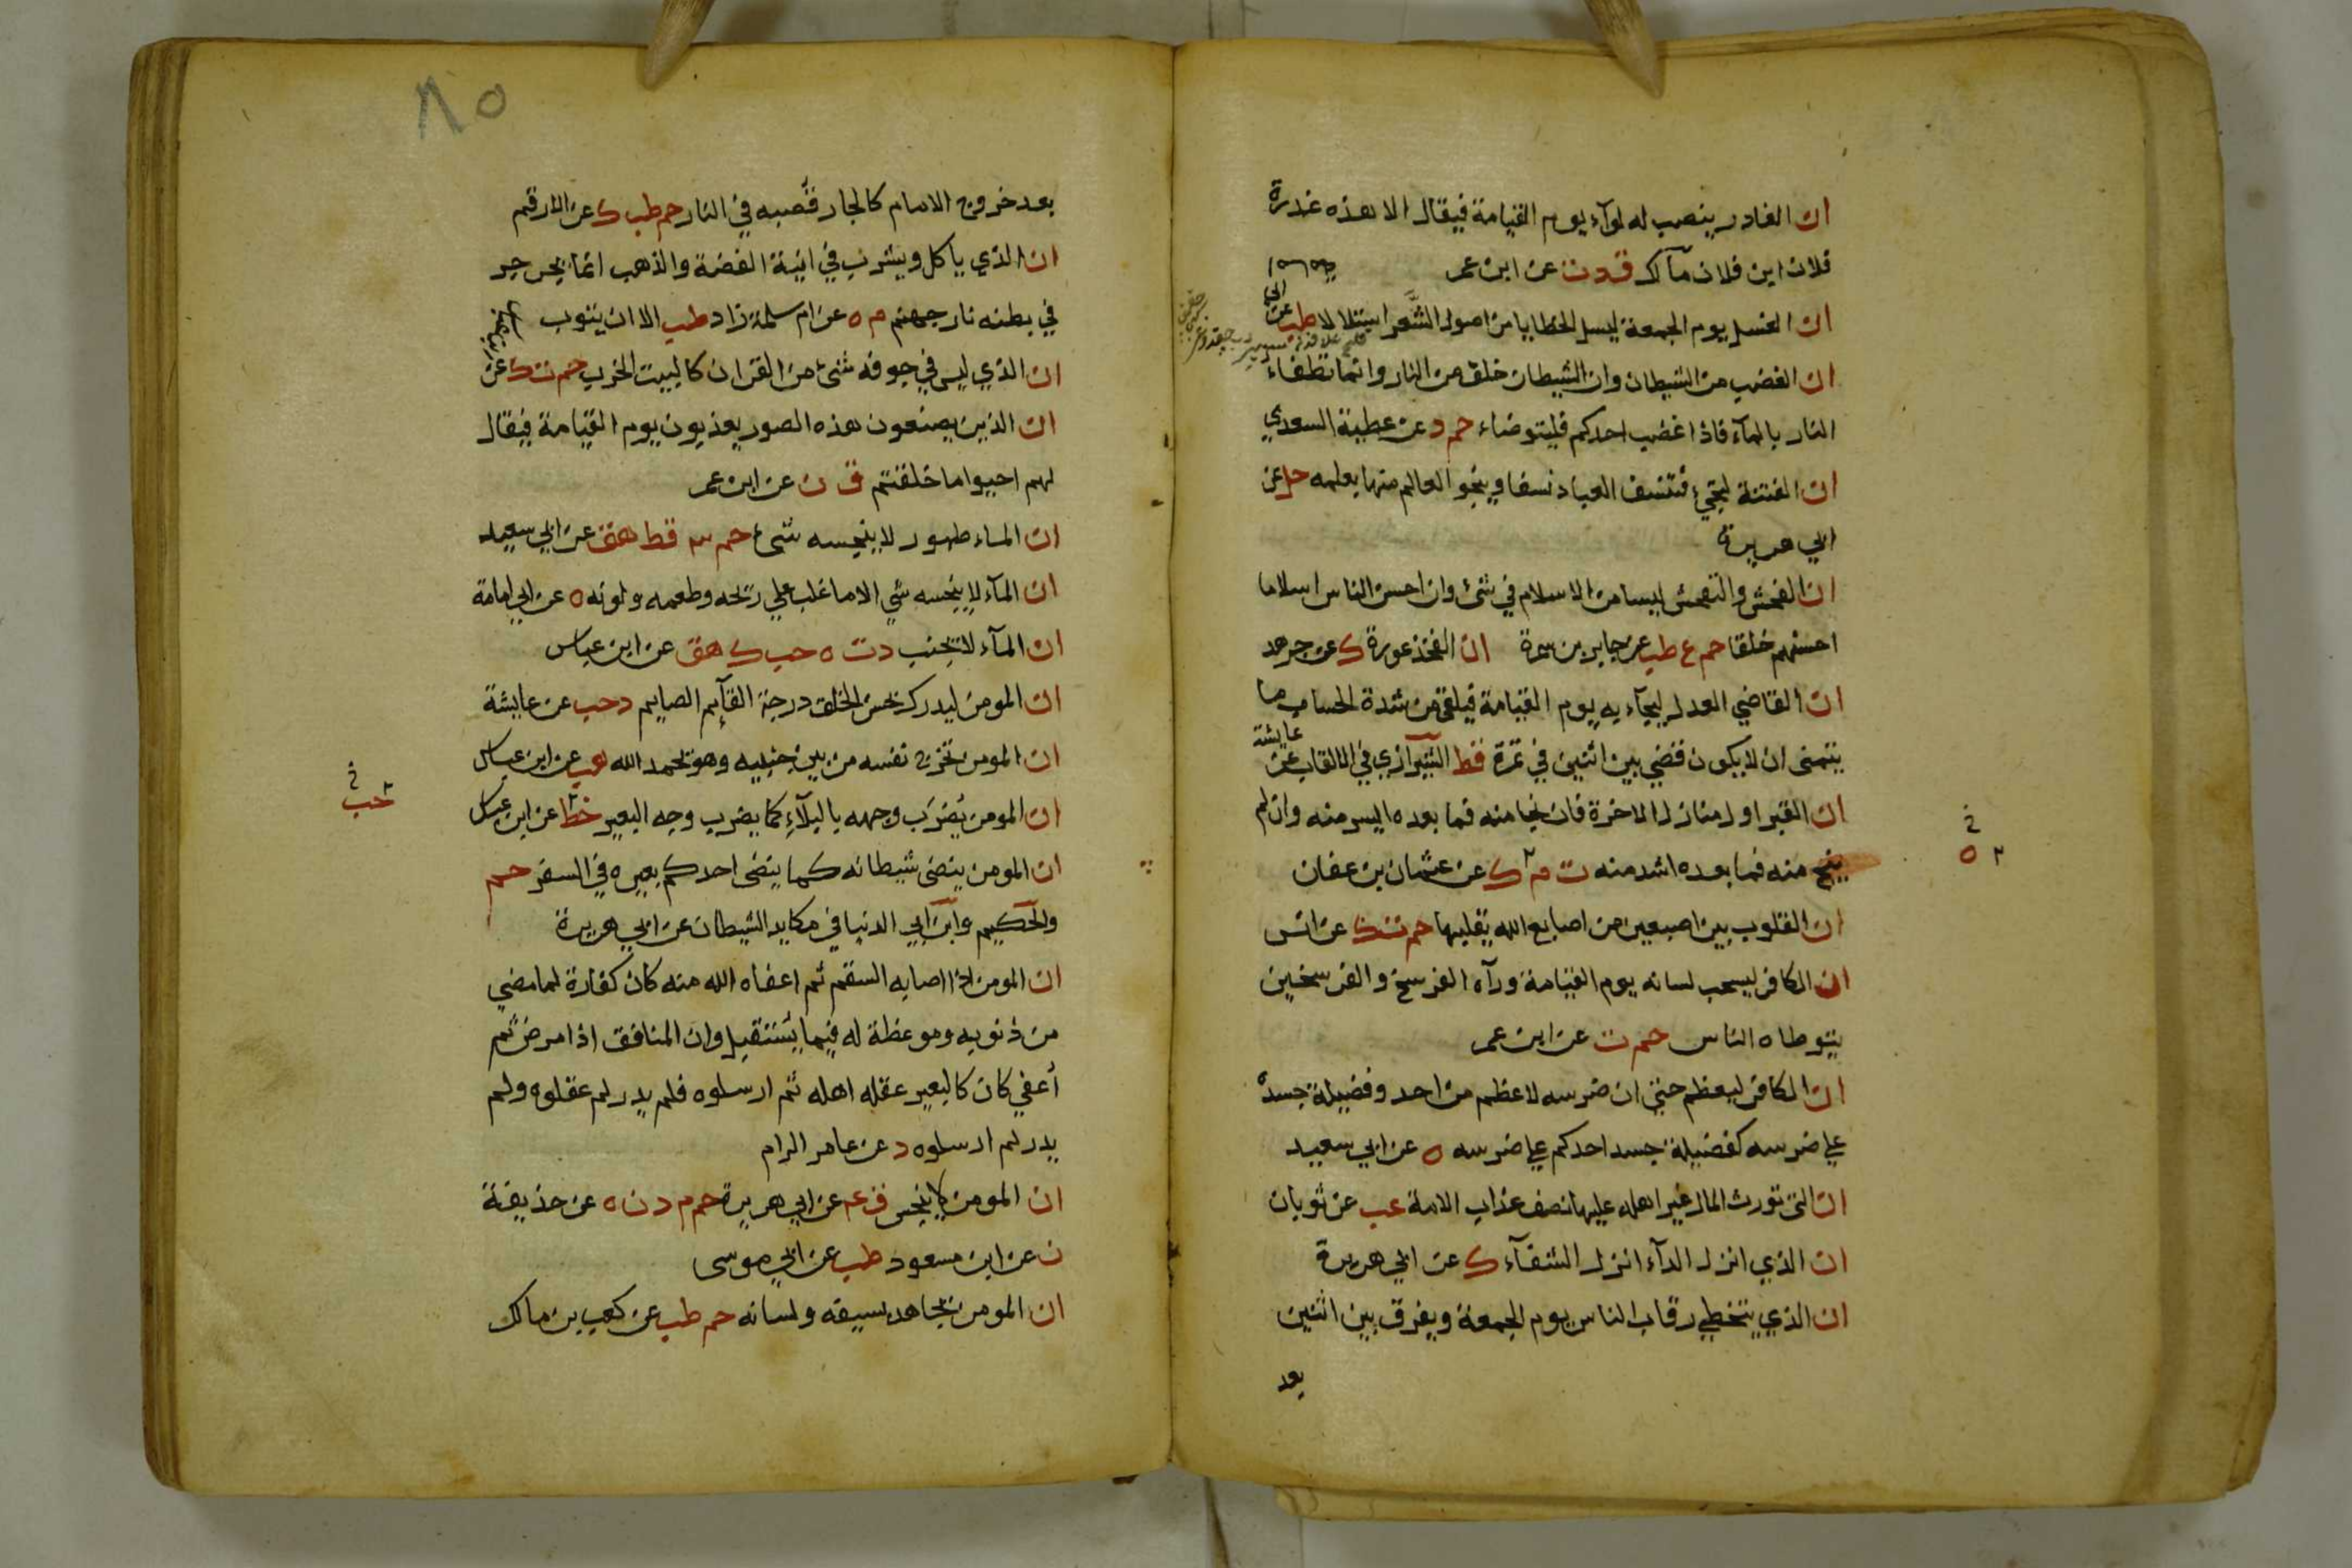 ان الغادر ينصب له لوآء يوم القيامة فيقال الا هذه غدرة
فلان ابن فلان مآلك ق د ت عن ابن عمر
ان الغسل يوم الجمعة ليسل الخطايا من اصول الشعر استلالا طب عن
ان الغضب من الشيطان وان الشيطان خلق من النار وانما تطفاء
النار بالمآء فاذا غضب احدكم فليتوضاء حم د عن عطية السعدي
ان الفتنة لتجيء فتنسف العباد نسفا وينجو العالم منها بعلمه حل عن
ابي هريرة
ان الفحش والتفحش ليسا من الاسلام في شئ وان احسن الناس اسلاما
احسنهم خلقا حم ع طب عن جابر بن سمرة ان الفخذ عورة ك عن جرهد
ان القاضي العدل ليجآء به يوم القيامة فيلقى من شدة الحساب ما
يتمنى ان لا يكون قضي بين اثنين في تمرة قط الشيرازي في الالقاب عن
عايشة
ان القبر اول منازل الاخرة فان نجا منه فما بعده ايسر منه وان لم
ينج منه فما بعده اشد منه ت م ك عن عثمان بن عفان
ان القلوب بين اصبعين من اصابع الله يقلبها حم ت ك عن انس
ان الكافر ليسحب لسانه يوم القيامة ورآه الفرسخ والفرسخين
يتوطاه الناس حم ت عن ابن عمر
ان الكافر ليعظم حتى ان ضرسه لاعظم من احد وفضيلة جسده
علي ضرسه كفضيلة جسد احدكم علي ضرسه ه عن ابي سعيد
ان التي تورث المال غير اهله عليها نصف عذاب الامة عب عن ثوبان
ان الذي انزل الدآء انزل الشفآء ك عن ابي هريرة
ان الذي يتخطي رقاب الناس يوم الجمعة ويفرق بين اثنين
بعد
٨٥
بعد خروج الامام كالجار قصبه في النار حم طب ك عن الارقم
ان الذي ياكل ويشرب في انية الفضة والذهب انما يجرجر
في بطنه نار جهنم م ه عن ام سلمة زاد طب الا ان يتوب
ان الذي ليس في جوفه شئ من القران كالبيت الخرب حم ت ك عن
ابن عباس
ان الذين يصنعون هذه الصور يعذبون يوم القيامة فيقال
لهم احيوا ما خلقتم ق ن عن ابن عمر
ان الماء طهور لا ينجسه شئ حم ٣ قط هق عن ابي سعيد
ان المآء لا ينجسه شي الا ما غلب علي ريحه وطعمه ولونه ه عن ابي امامة
ان المآء لا يجنب د ت ه حب ك هق عن ابن عباس
ان المومن ليدرك بحسن الخلق درجة القآيم الصايم د حب عن عايشة
ان المومن تخرج نفسه من بين جنبيه وهو يحمد الله هب عن ابن عباس
ان المومن يضرب وجهه بالبلآء كما يضرب وجه البعير خط عن ابن عباس
حب
ان المومن ينضى شيطانه كما ينضى احدكم بعيره في السفر حم
والحكيم وابن ابي الدنيا في مكايد الشيطان عن ابي هريرة
ان المومن اذا اصابه السقم ثم اعفاه الله منه كان كفارة لما مضي
من ذنوبه وموعظة له فيما يستقبل وان المنافق اذا مرض ثم
أعفي كان كالبعير عقله اهله ثم ارسلوه فلم يدر لم عقلوه ولم
يدر لم ارسلوه د عن عامر الرام
ان المومن لا ينجس ق ع عن ابي هريرة حم م د ن ه عن حذيفة
ن عن ابن مسعود طب عن ابي موسى
ان المومن يجاهد بسيفه ولسانه حم طب عن كعب بن مالك